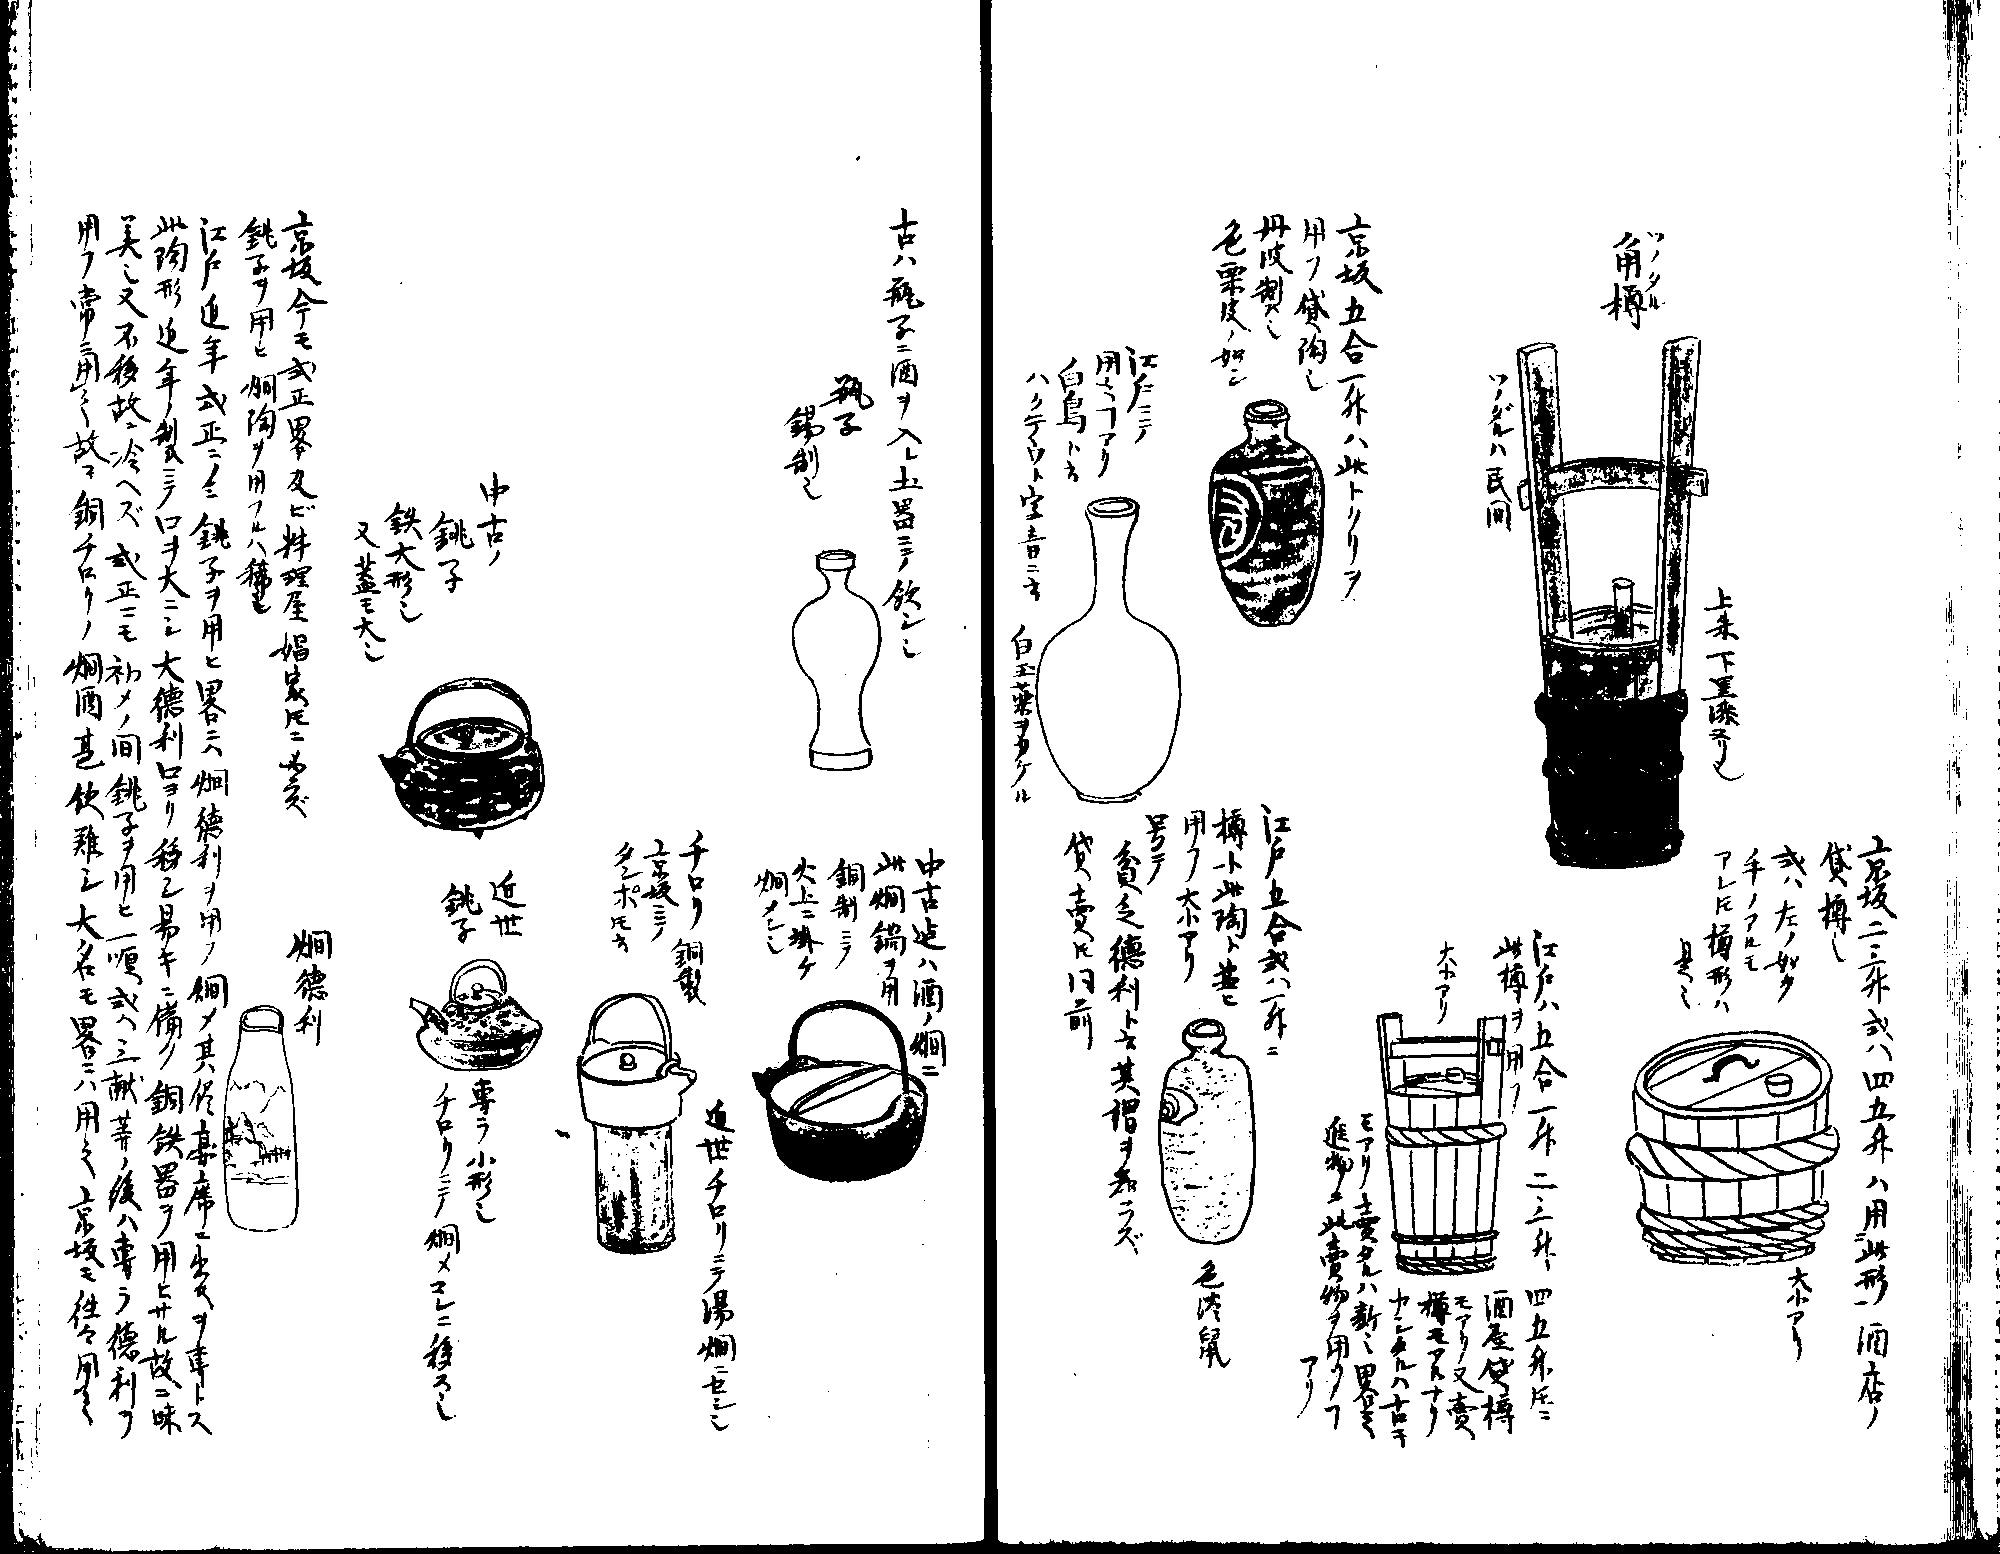 角樽
ツノタル
ツノダルハ民間
上朱下黒漆ヌリ也
京坂二三升或ハ四五升ハ用此形酒店ノ
貸樽也
或ハ左ノ如ク
手ノアルモ
アレ𪜈樽形ハ
是也
大小アリ
江戸ハ五合一升二三升、四五升𪜈ニ
此樽ヲ用フ
酒屋貸樽
モアリ又賣
樽モアルナリ
大小アリ
モアリ賣タルハ新ニ
進物ニ此賣物ヲ用フ
アリ
京坂五合一升ハ此トクリヲ
用フ貸陶也
丹波製也
色栗皮ノ如シ
江戸ニテ
用フ𪜈アリ
白鳥ト云
ハクテウト字音ニ云
白玉薬ヲカケル
江戸五合或ハ一升ニ
樽ト此陶ト並ビ
用フ大小アリ
号テ
貧乏徳利ト云其謂ヲ知ラズ
貸賣𪜈同前
色淡鼠
古ハ瓶子ニ酒ヲ入レ土器ニテ飲シ也
瓶子
錫制也
中古迠ハ酒ノ燗ニ
此燗鍋ヲ用
銅制ニテ
火上ニ掛ケ
燗メシ也
チロリ 銅製
京坂ニテ
タンポ𪜈云
近世チロリニテ湯燗ニセシ也
中古ノ
銚子
鉄大形也
又蓋モ大也
近世
銚子
専ラ小形也
チロリニテ燗メコレニ移ス也
京坂今モ式正畧及ビ料理屋娼家𪜈ニ必ズ
銚子ヲ用ヒ燗陶ヲ用フルハ稀也
江戸近年式正ニノミ銚子ヲ用ヒ畧ニハ燗徳利ヲ用フ燗メ其侭宴席ニ出スヲ専トス
此陶形近年ノ製ニテ口ヲ大ニシ大徳利口ヨリ移シ易キニ備フ銅鉄器ヲ用ヒザル故ニ味
美也又不移故ニ冷ヘズ式正ニモ初メノ間銚子ヲ用ヒ一順或ハ三献等ノ後ハ専ラ徳利ヲ
用フ常ニ用之故ニ銅チロリノ燗酒甚飲難シ大名モ畧ニハ用之京坂モ往々用之
燗徳利